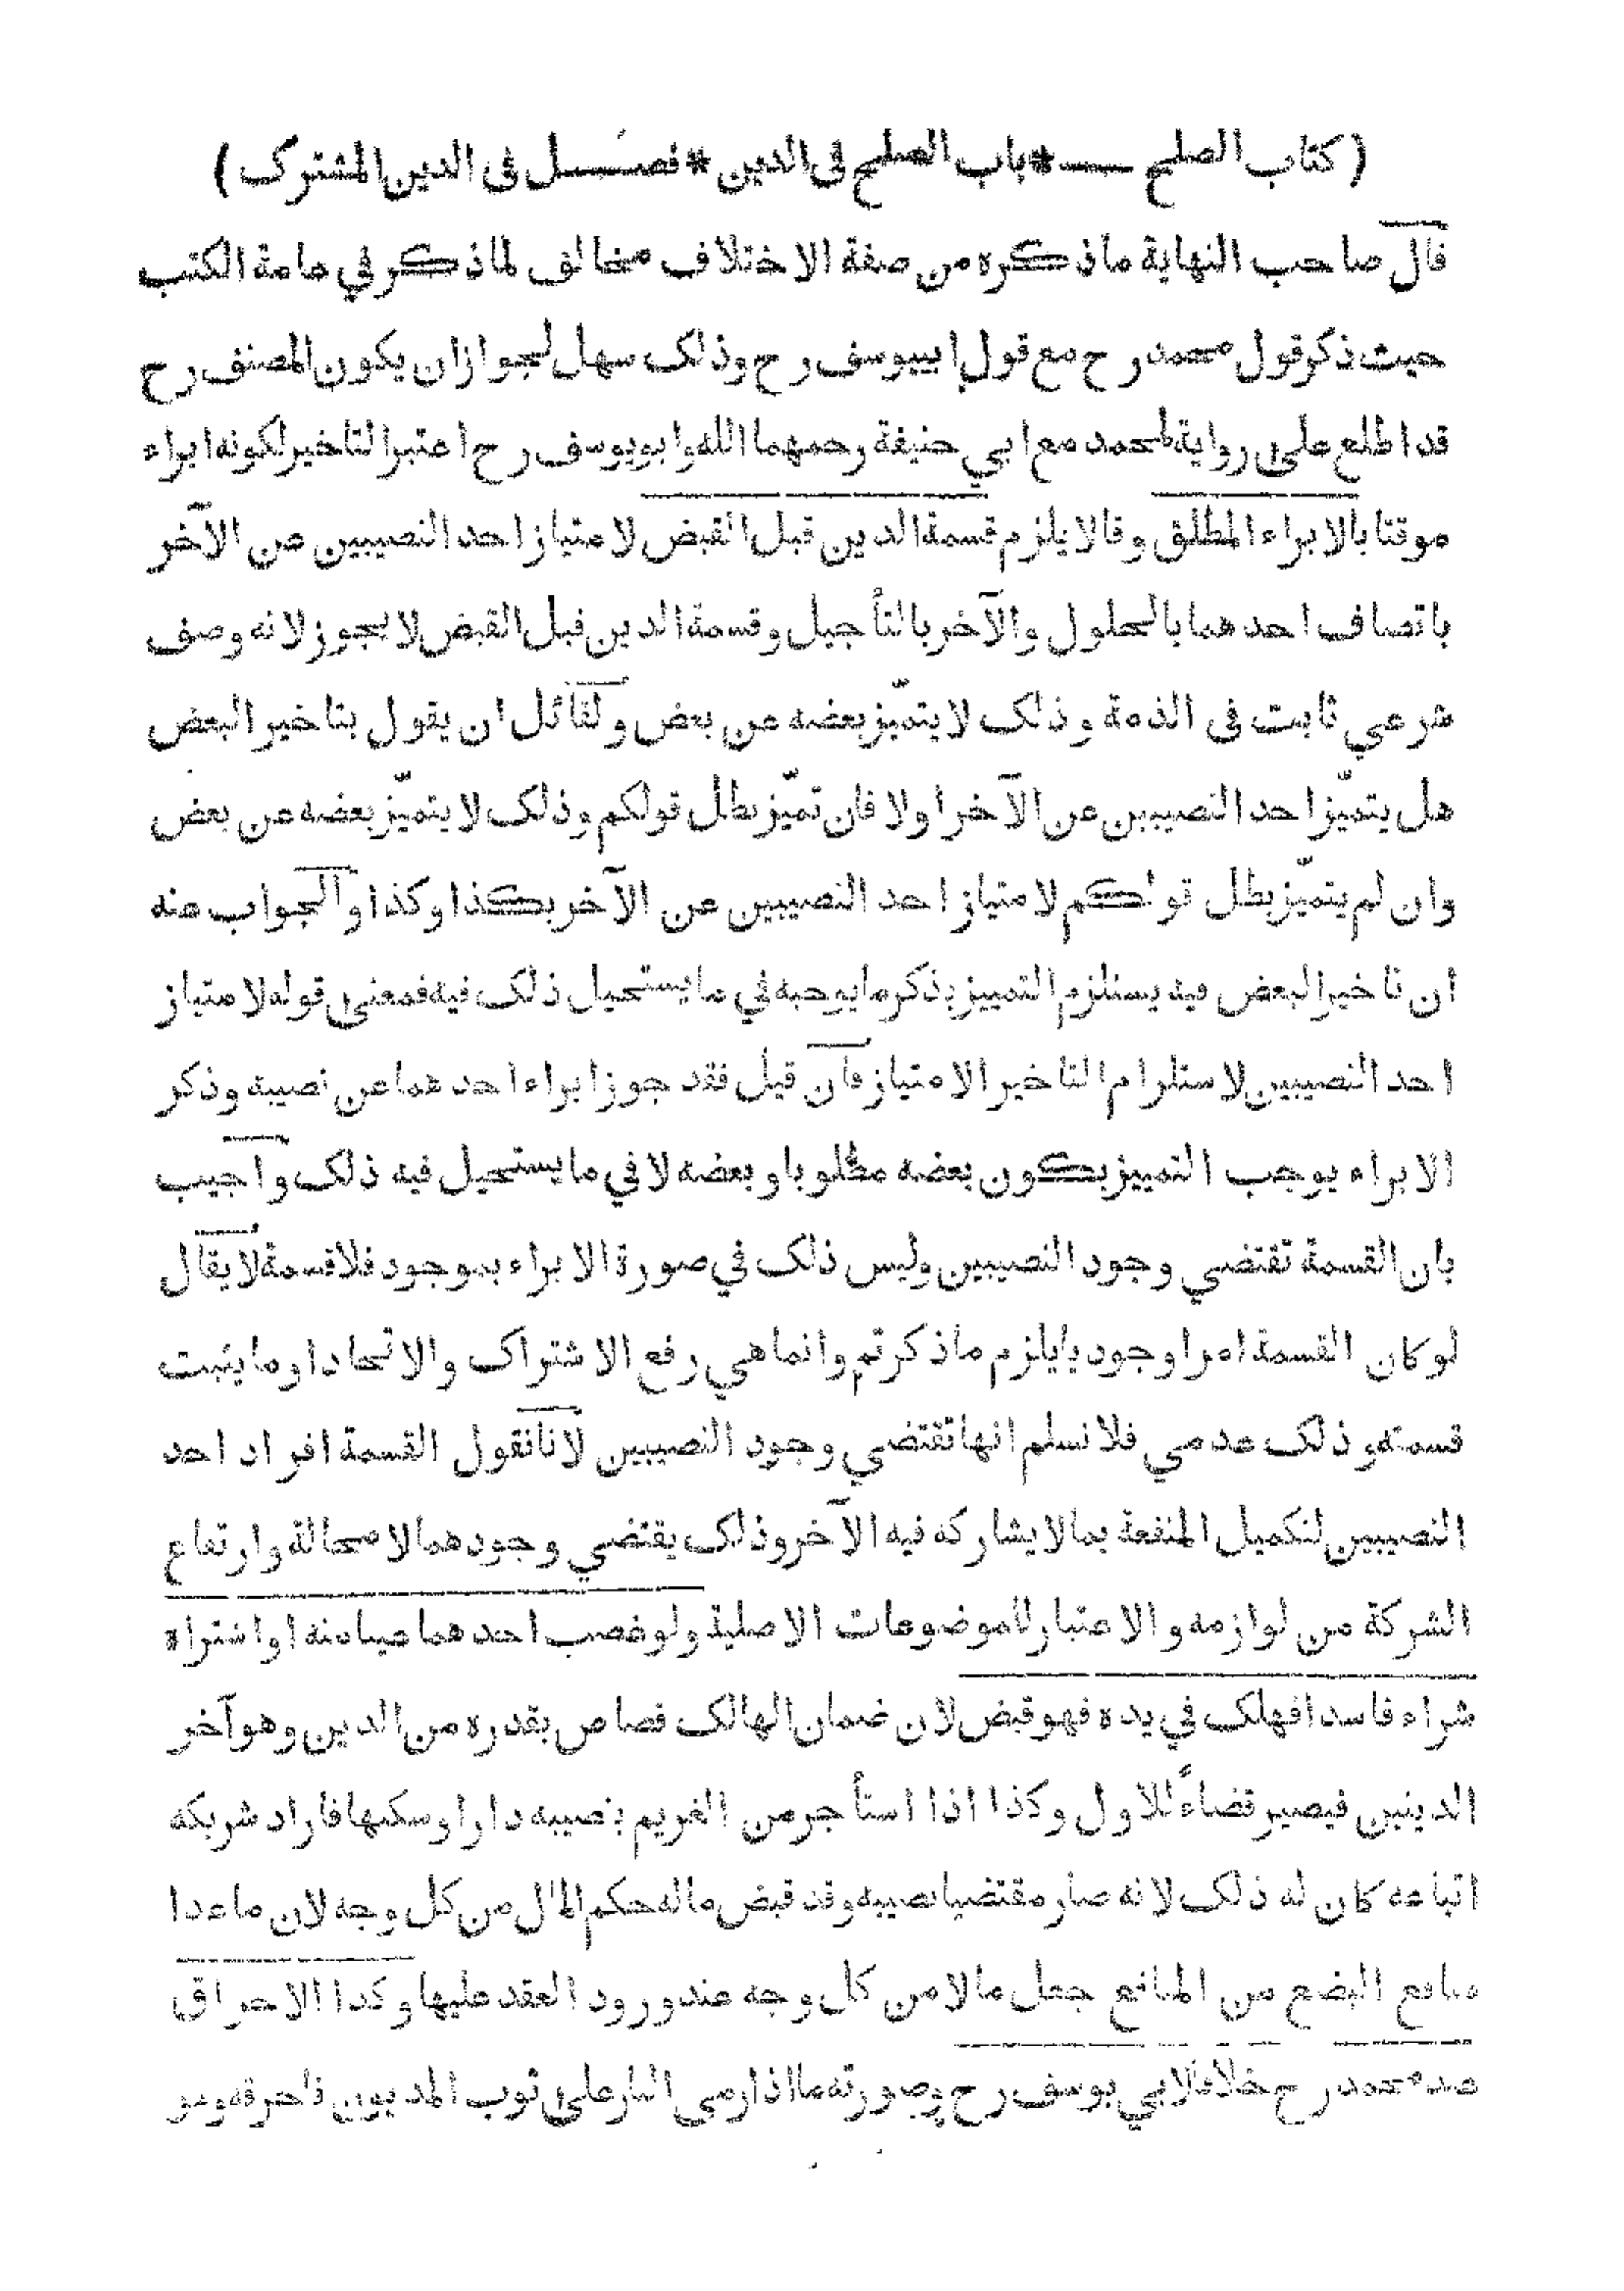 ( كتاب الصلح — * باب الصلح فى الدين * فصل فى الدين المشترك )
قال صاحب النهاية ماذكره من صفة الاختلاف مخالف لماذكر في عامة الكتب
حيث ذكر قول محمد رح مع قول ابييوسف رح وذلك سهل لجواز ان يكون المصنف رح
قد اطلع على رواية لمحمد مع ابي حنيفة رحمهما الله وابويوسف رح اعتبر التاخير لكونه ابراء
موقتا بالابراء المطلق وقالا يلزم قسمة الدين قبل القبض لامتياز احد النصيبين عن الآخر
باتصاف احدهما بالحلول والآخر بالتأجيل وقسمة الدين قبل القبض لا يجوز لانه وصف
شرعي ثابت فى الذمة وذلك لا يتميّز بعضه عن بعض ولقائل ان يقول بتاخير البعض
هل يتميّز احد النصيبين عن الآخر اولا فان تميّز بطل قولكم وذلك لا يتميّز بعضه عن بعض
وان لم يتميّز بطل قولكم لامتياز احد النصيبين عن الآخر بكذا وكذا والجواب عنه
ان تاخير البعض فيه يستلزم التمييز بذكر مايوجبه في مايستحيل ذلك فيه فمعنى قوله لامتياز
احد النصيبين لاستلزام التاخير الامتياز فان قيل فقد جوز ابراء احدهما عن نصيبه وذكر
الابراء يوجب التمييز بكون بعضه مطلوبا وبعضه لا في مايستحيل فيه ذلك واجيب
بان القسمة تقتضي وجود النصيبين وليس ذلك في صورة الابراء بموجود فلا قسمة لا يقال
لو كان القسمة امرا وجوديا يلزم ماذكرتم وانماهي رفع الاشتراك والاتحاد اوما يثبت
قسمته وذلك عدمي فلا نسلم انها تقتضي وجود النصيبين لانا نقول القسمة افراد احد
النصيبين لتكميل المنفعة بمالايشاركه فيه الآخر وذلك يقتضي وجودهما لا محالة وارتفاع
الشركة من لوازمه والاعتبار للموضوعات الاصلية ولو غصب احدهما عينا منه اواشتراه
شراء فاسدا فهلك في يده فهو قبض لان ضمان الهالك قصاص بقدره من الدين وهو آخر
الدينين فيصير قضاءً للاول وكذا اذا استأجر من الغريم بنصيبه دارا وسكنها فاراد شريكه
اتباعه كان له ذلك لانه صار مقتضيا نصيبه وقد قبض ماله حكم المال من كل وجه لان ماعدا
منافع البضع من المنافع جعل مالا من كل وجه عند ورود العقد عليها وكذا الاحراق
عند محمد رح خلافا لابي يوسف رح وصورته مااذارمى النار على ثوب المديون فاحرقه وهو